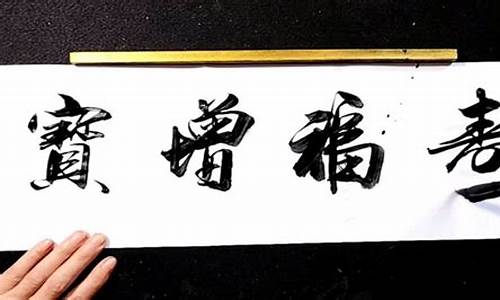 寶增福壽